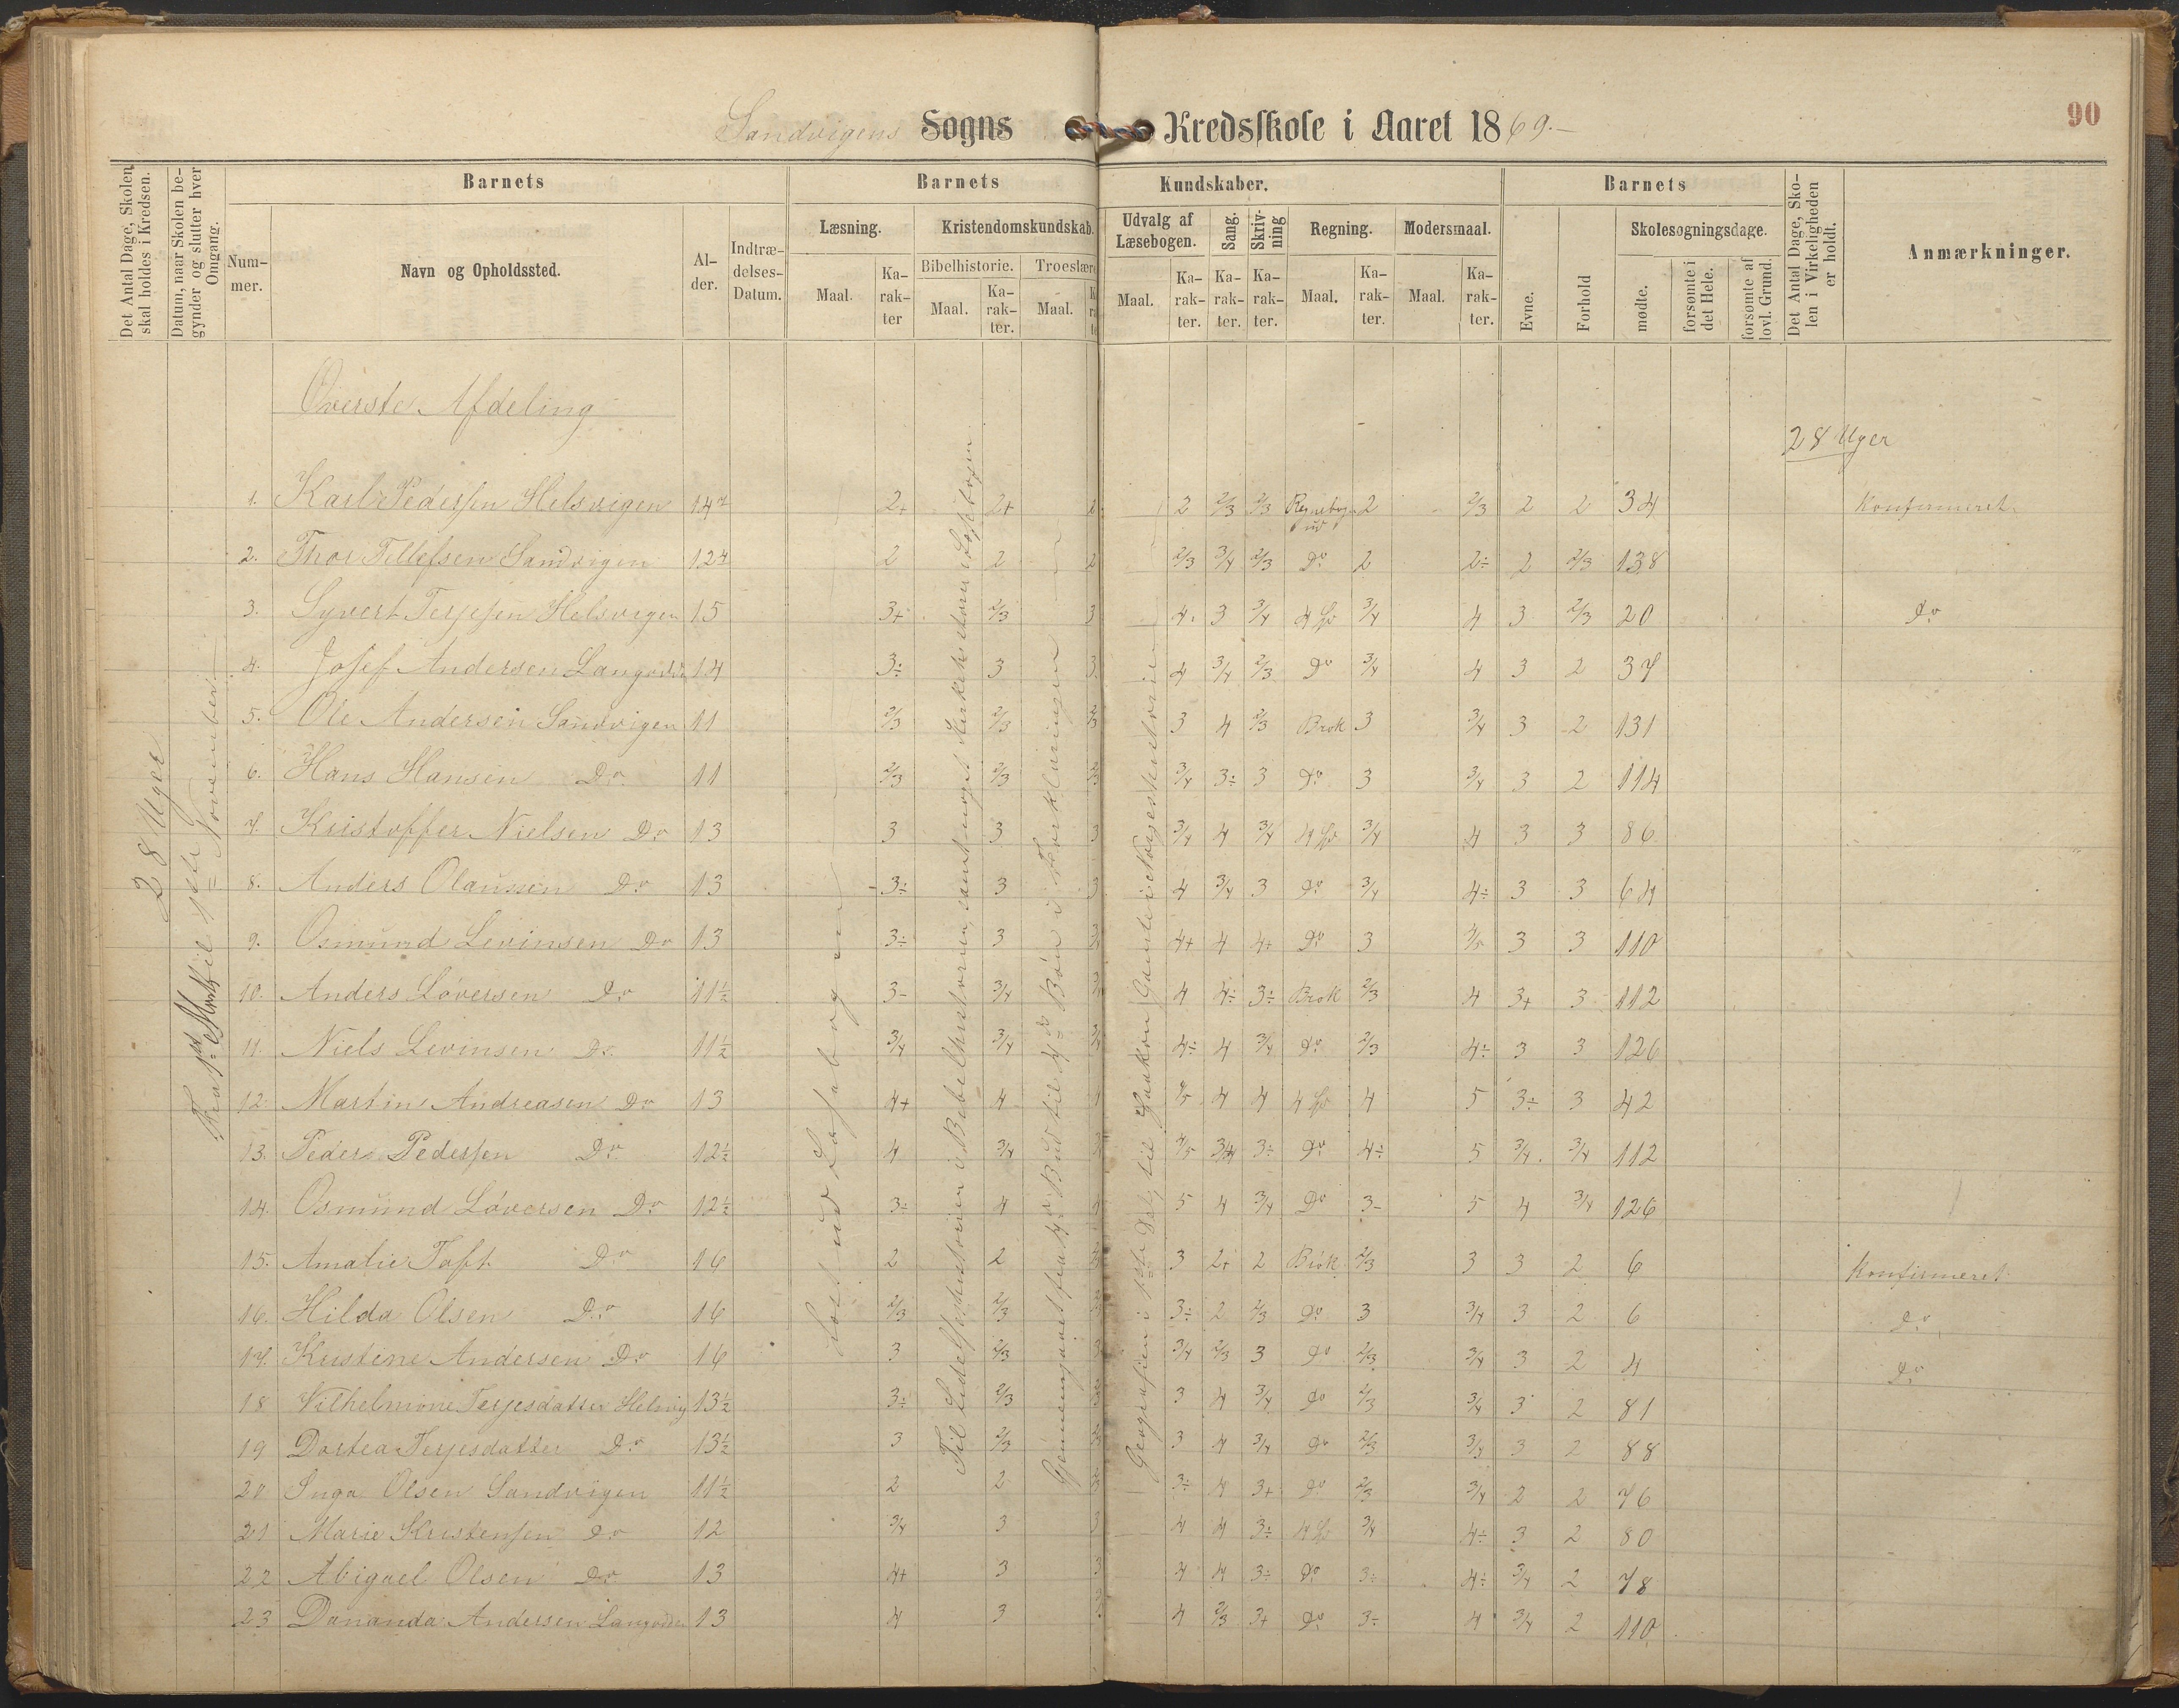 90
Sandvigens Sogns Kredsskole i Aaret 1869.-
Det Antal Dage, Skolen skal holdes i Kredsen.
Datum, naar Skolen begynder og slutter hver Omgang.
Barnets
Barnets Kundskaber.
Barnets
Det Antal Dage, Skolen i Virkeligheden er holdt.
Anmærkninger.
Nummer.
Navn og Opholdssted.
Alder.
Indtrædelses-Datum.
Læsning.
Kristendomskundskab.
Udvalg af Læsebogen.
Sang.
Skrivning
Regning.
Modersmaal.
Evne.
Forhold
Skolesøgningsdage.
Bibelhistorie.
Troeslære
Maal.
Karakter
Maal.
Karakter.
Maal.
Maal.
Karakter.
Karakter.
Karakter.
Maal.
Karakter.
Maal.
Karakter.
mødte.
forsømte i det Hele.
forsømte af lovl. Grund.
Øverste Afdeling
28 Uger
28 Uger
Fra 1ste Marts til 1ste November
1. Karl Pedersen Helsvigen 14 2+ 2+ 2 2 2/3 2/3 Regnebogen ud 2 2/3 2 2 34 Konfirmeret
2. Thor Tellefsen Sandvigen 12 2 2 2 2/3 3/4 2/3 Do 2 2÷ 2 2/3 138
3. Syvert Terjesen Helsvigen 15 3+ 2/3 3 4. 3 3/4 3/4 4 3 2/3 20 Do
4. Josef Andersen 14 3÷ 3 3 4 3/4 2/3 Do 3/4 4 3 2 37
5. Ole Andersen Sandvigen 11 2/3 2/3 2/3 3 4 2/3 Brøk 3 3/4 3 2 131
6. Hans Hansen Do 11 2/3 2/3 2/3 3/4 3÷ 3 Do 3 3/4 3 2 114
7. Kristoffer Nielsen Do 13 3 3 3 3/4 4 3/4 3/4 4 3 3 86
8. Anders Olaussen Do 13 3÷ 3 3 4 3/4 3 Do 3/4 4÷ 3 3 64
9. Osmund Levinsen Do 13 3÷ 3 4+ 4 4+ Do 3 4/5 3 3 110
10. Anders Løversen Do 11½ 3- 3/4 4 4÷ 3÷ Brøk 2/3 4 3+ 3 112
11. Niels Levinsen Do 11½ 3/4 3/4 4÷ 4 3/4 Do 2/3 4÷ 3 3 126
12. Martin Andreasen Do 13 4+ 4 4 4/5 4 4 4 5 3÷ 3 42
13. Peder Pedersen Do 12½ 4 3/4 4/5 3/4 3÷ Do 4÷ 5 3/4 3/4 112
14. Osmund Løversen Do 12½ 3÷ 4 4 5 4 3/4 Do 3- 5 4 3/4 126
15. Amalie Toft Do 16 2 2 3 2+ 2 Brøk 2/3 3 3 2 6 Konfirmeret
16. Hilda Olsen Do 16 2/3 2/3 3÷ 2 2/3 Do 3 3/4 3 2 6 Do
17. Kristine Andersen Do 16 3 2/3 3/4 2/3 3 Do 2/3 3/4 3 2 4 Do
18 Vilhelmine Terjesdatter Helsvig 13½ 3÷ 2/3 3 4 3/4 Do 2/3 3/4 3 2 81
19 Dortea Terjesdatter Do 13½ 3 2/3 3 4 3/4 Do 2/3 3/4 3 2 88
20 Inga Olsen Sandvigen 11½ 2 2 3÷ 4 3+ Do 2/3 3/4 2 2 76
21 Marie Kristensen Do 12 3/4 3 3 4 4 3÷ 3/4 4÷ 3 2 80
22 Abigael Olsen Do 13 4+ 3 3 4 4 3÷ Do 3÷ 4÷ 3/4 2 78
23 Dananda Andersen 13 4 3 4 2/3 3+ Do 3÷ 4 3/4 2 110
Læst ud Læsebogen
Til Lidelseshistorien i Bibelhistorien, samt noget Kirkehistorie i Læsebogen
Gjennemgaaet fra Bud til Bøn i Forklaringen
Geografien i 1ste Del, til Haakon Gamle i Norgeshistorien